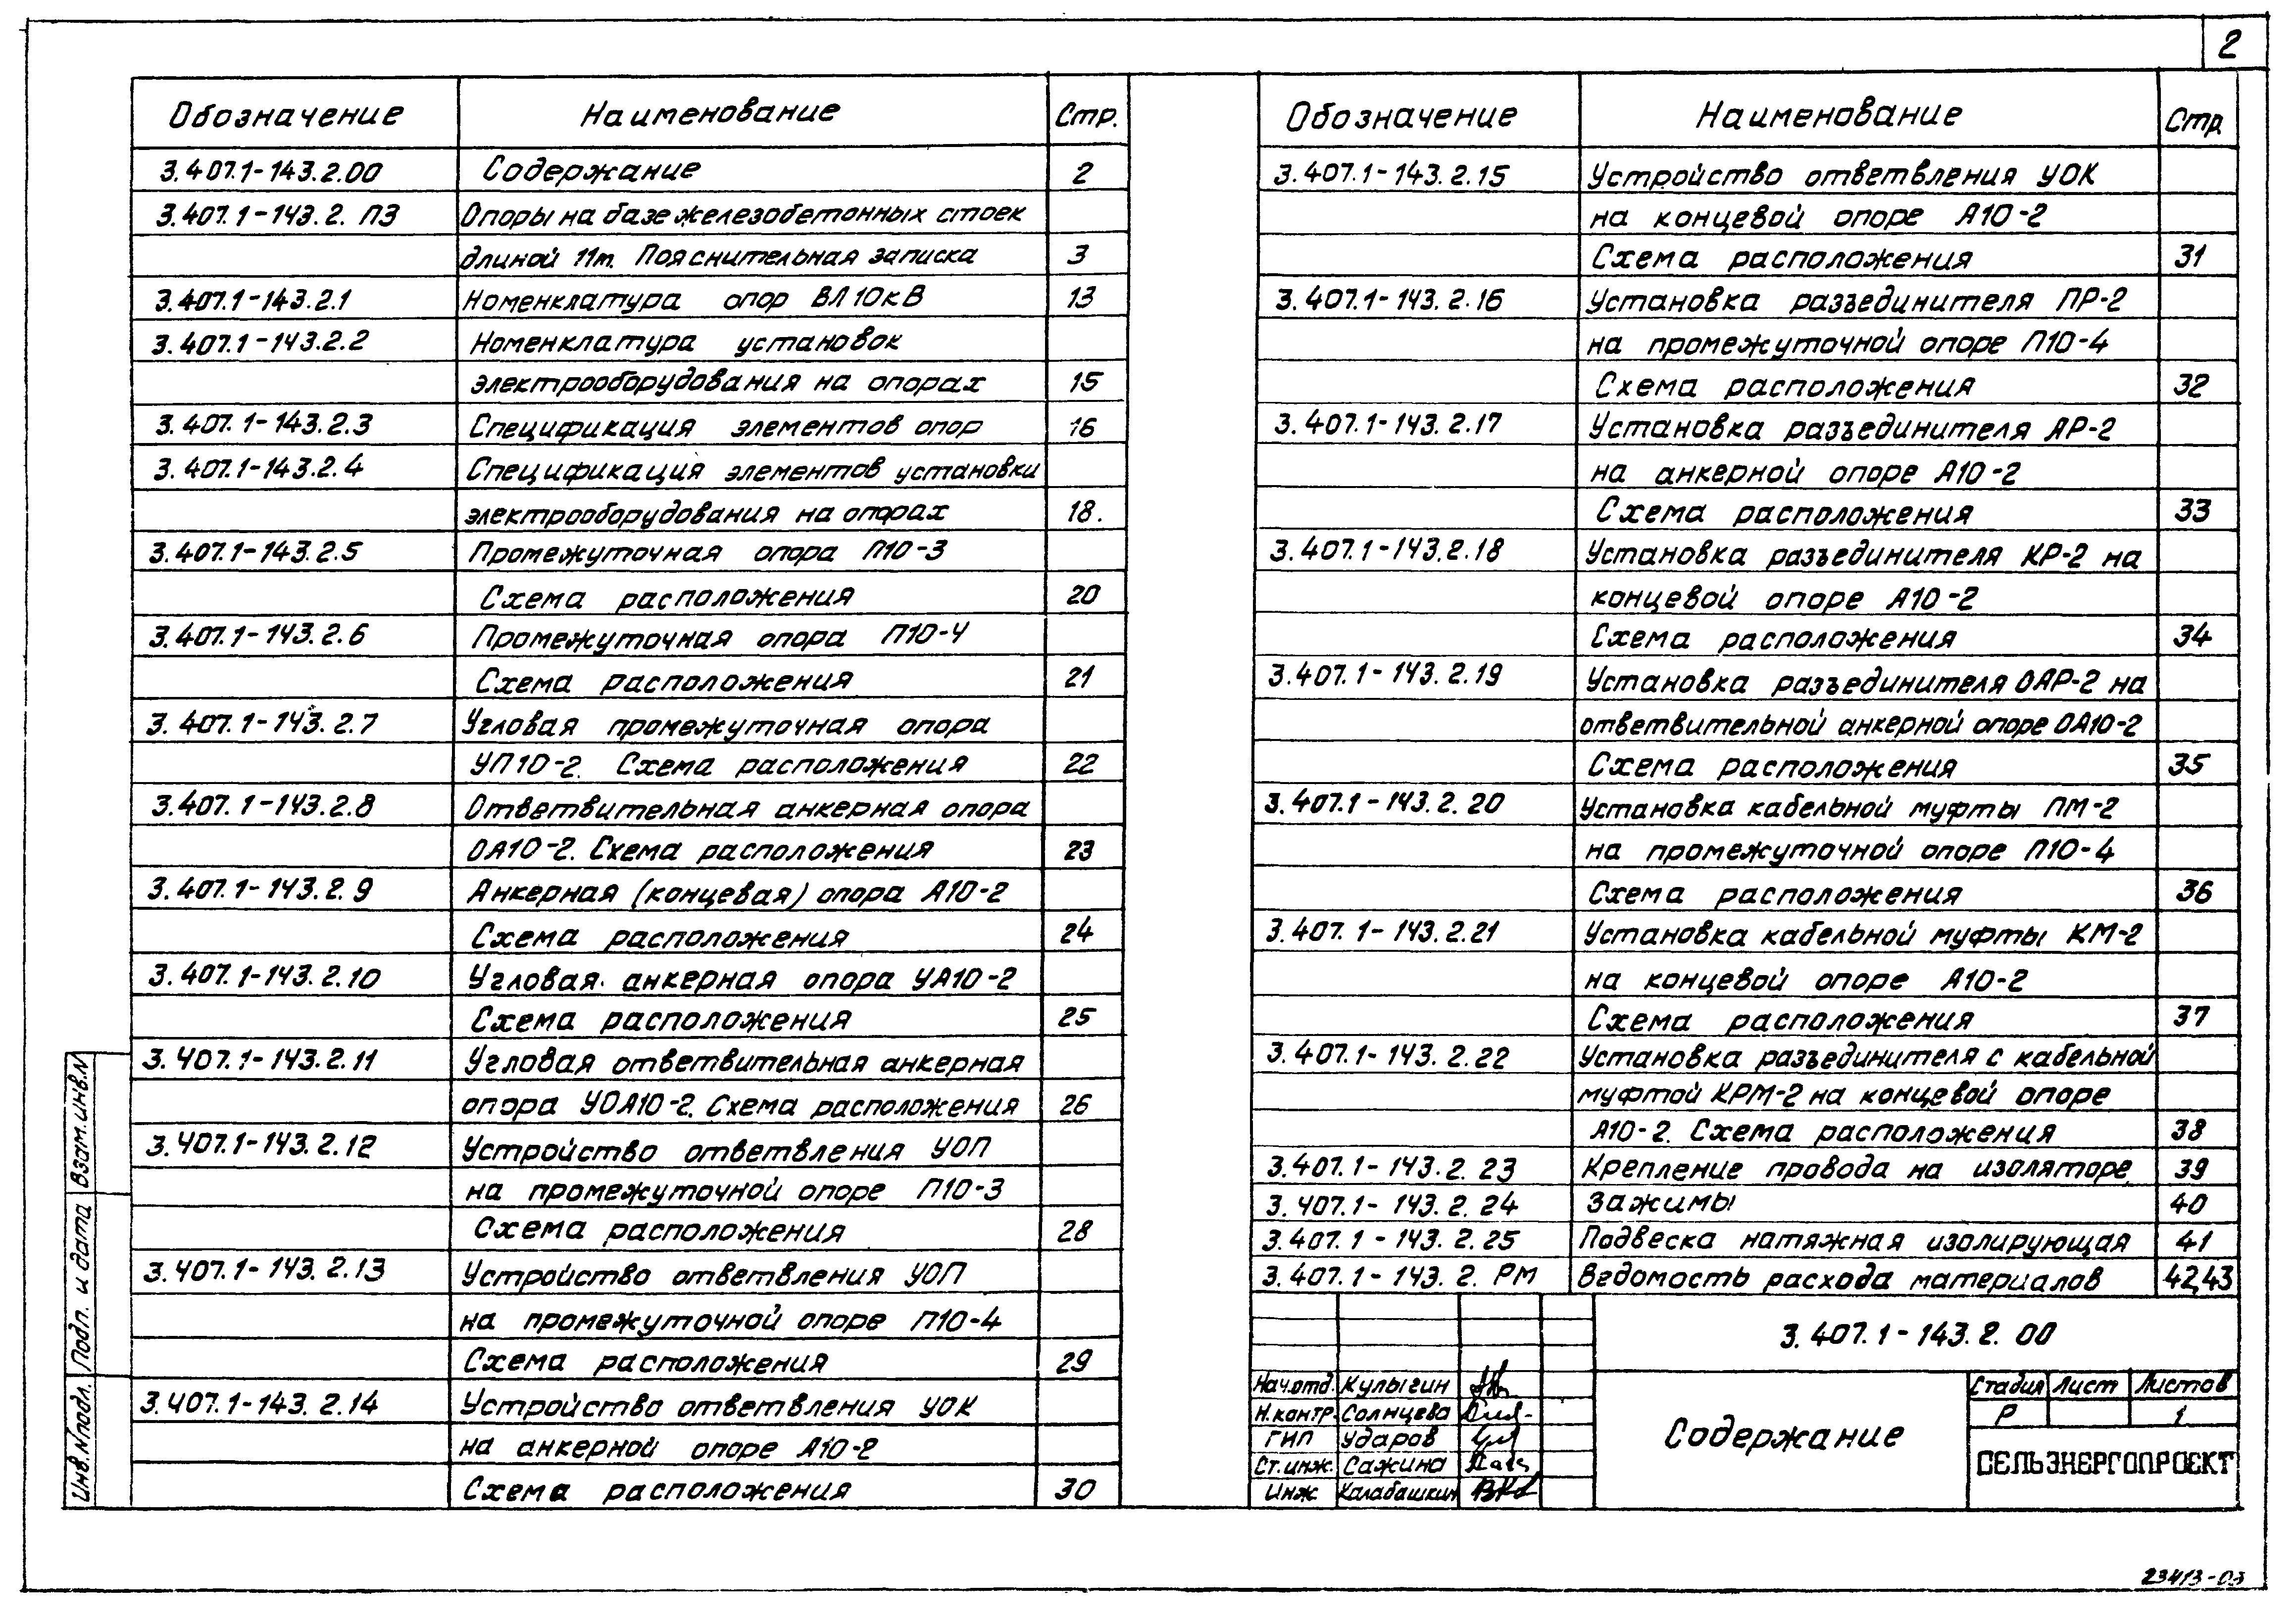 2
Обозначение Наименование Стр.
3.407.1-143.2.00 Содержание 2
3.407.1-143.2.ПЗ Опоры на базе железобетонных стоек
длиной 11m. Пояснительная записка 3
3.407.1-143.2.1 Номенклатура опор ВЛ 10кВ 13
3.407.1-143.2.2 Номенклатура установок
электрооборудования на опорах 15
3.407.1-143.2.3 Спецификация элементов опор 16
3.407.1-143.2.4 Спецификация элементов установки
электрооборудования на опорах 18.
3.407.1-143.2.5 Промежуточная опора П10-3
Схема расположения 20
3.407.1-143.2.6 Промежуточная опора П10-4
Схема расположения 21
3.407.1-143.2.7 Угловая промежуточная опора
УП10-2. Схема расположения 22
3.407.1-143.2.8 Ответвительная анкерная опора
ОА10-2. Схема расположения 23
3.407.1-143.2.9 Анкерная (концевая) опора А10-2
Схема расположения 24
3.407.1-143.2.10 Угловая анкерная опора УА10-2
Схема расположения 25
3.407.1-143.2.11 Угловая ответвительная анкерная
опора УОА10-2. Схема расположения 26
3.407.1-143.2.12 Устройство ответвления УОП
на промежуточной опоре П10-3
Схема расположения 28
3.407.1-143.2.13 Устройство ответвления УОП
на промежуточной опоре П10-4
Схема расположения 29
3.407.1-143.2.14 Устройство ответвления УОК
на анкерной опоре А10-2
Схема расположения 30
Обозначение Наименование Стр
3.407.1-143.2.15 Устройство ответвления УОК
на концевой опоре А10-2
Схема расположения 31
3.407.1-143.2.16 Установка разъединителя ПР-2
на промежуточной опоре П10-4
Схема расположения 32
3.407.1-143.2.17 Установка разъединителя АР-2
на анкерной опоре А10-2
Схема расположения 33
3.407.1-143.2.18 Установка разъединителя КР-2 на
концевой опоре А10-2
Схема расположения 34
3.407.1-143.2.19 Установка разъединителя ОАР-2 на
ответвительной анкерной опоре ОА10-2
Схема расположения 35
3.407.1-143.2.20 Установка кабельной муфты ПМ-2
на промежуточной опоре П10-4
Схема расположения 36
3.407.1-143.2.21 Установка кабельной муфты КМ-2
на концевой опоре А10-2
Схема расположения 37
3.407.1-143.2.22 Установка разъединителя с кабельной
муфтой КРМ-2 на концевой опоре
А10-2. Схема расположения 38
3.407.1-143.2.23 Крепление провода на изоляторе 39
3.407.1-143.2.24 Зажимы 40
3.407.1-143.2.25 Подвеска натяжная изолирующая 41
3.407.1-143.2.РМ Ведомость расхода материалов 42,43
3.407.1-143.2.00
Нач.отд. Кулыгин
Н.контр. Солнцева
ГИП Ударов
Ст.инж. Сажина
Инж. Калабашкин
Содержание
Стадия Лист Листов
Р 1
СЕЛЬЭНЕРГОПРОЕКТ
Инв.№подл. Подп. и дата Взам.инв.№
23413-03